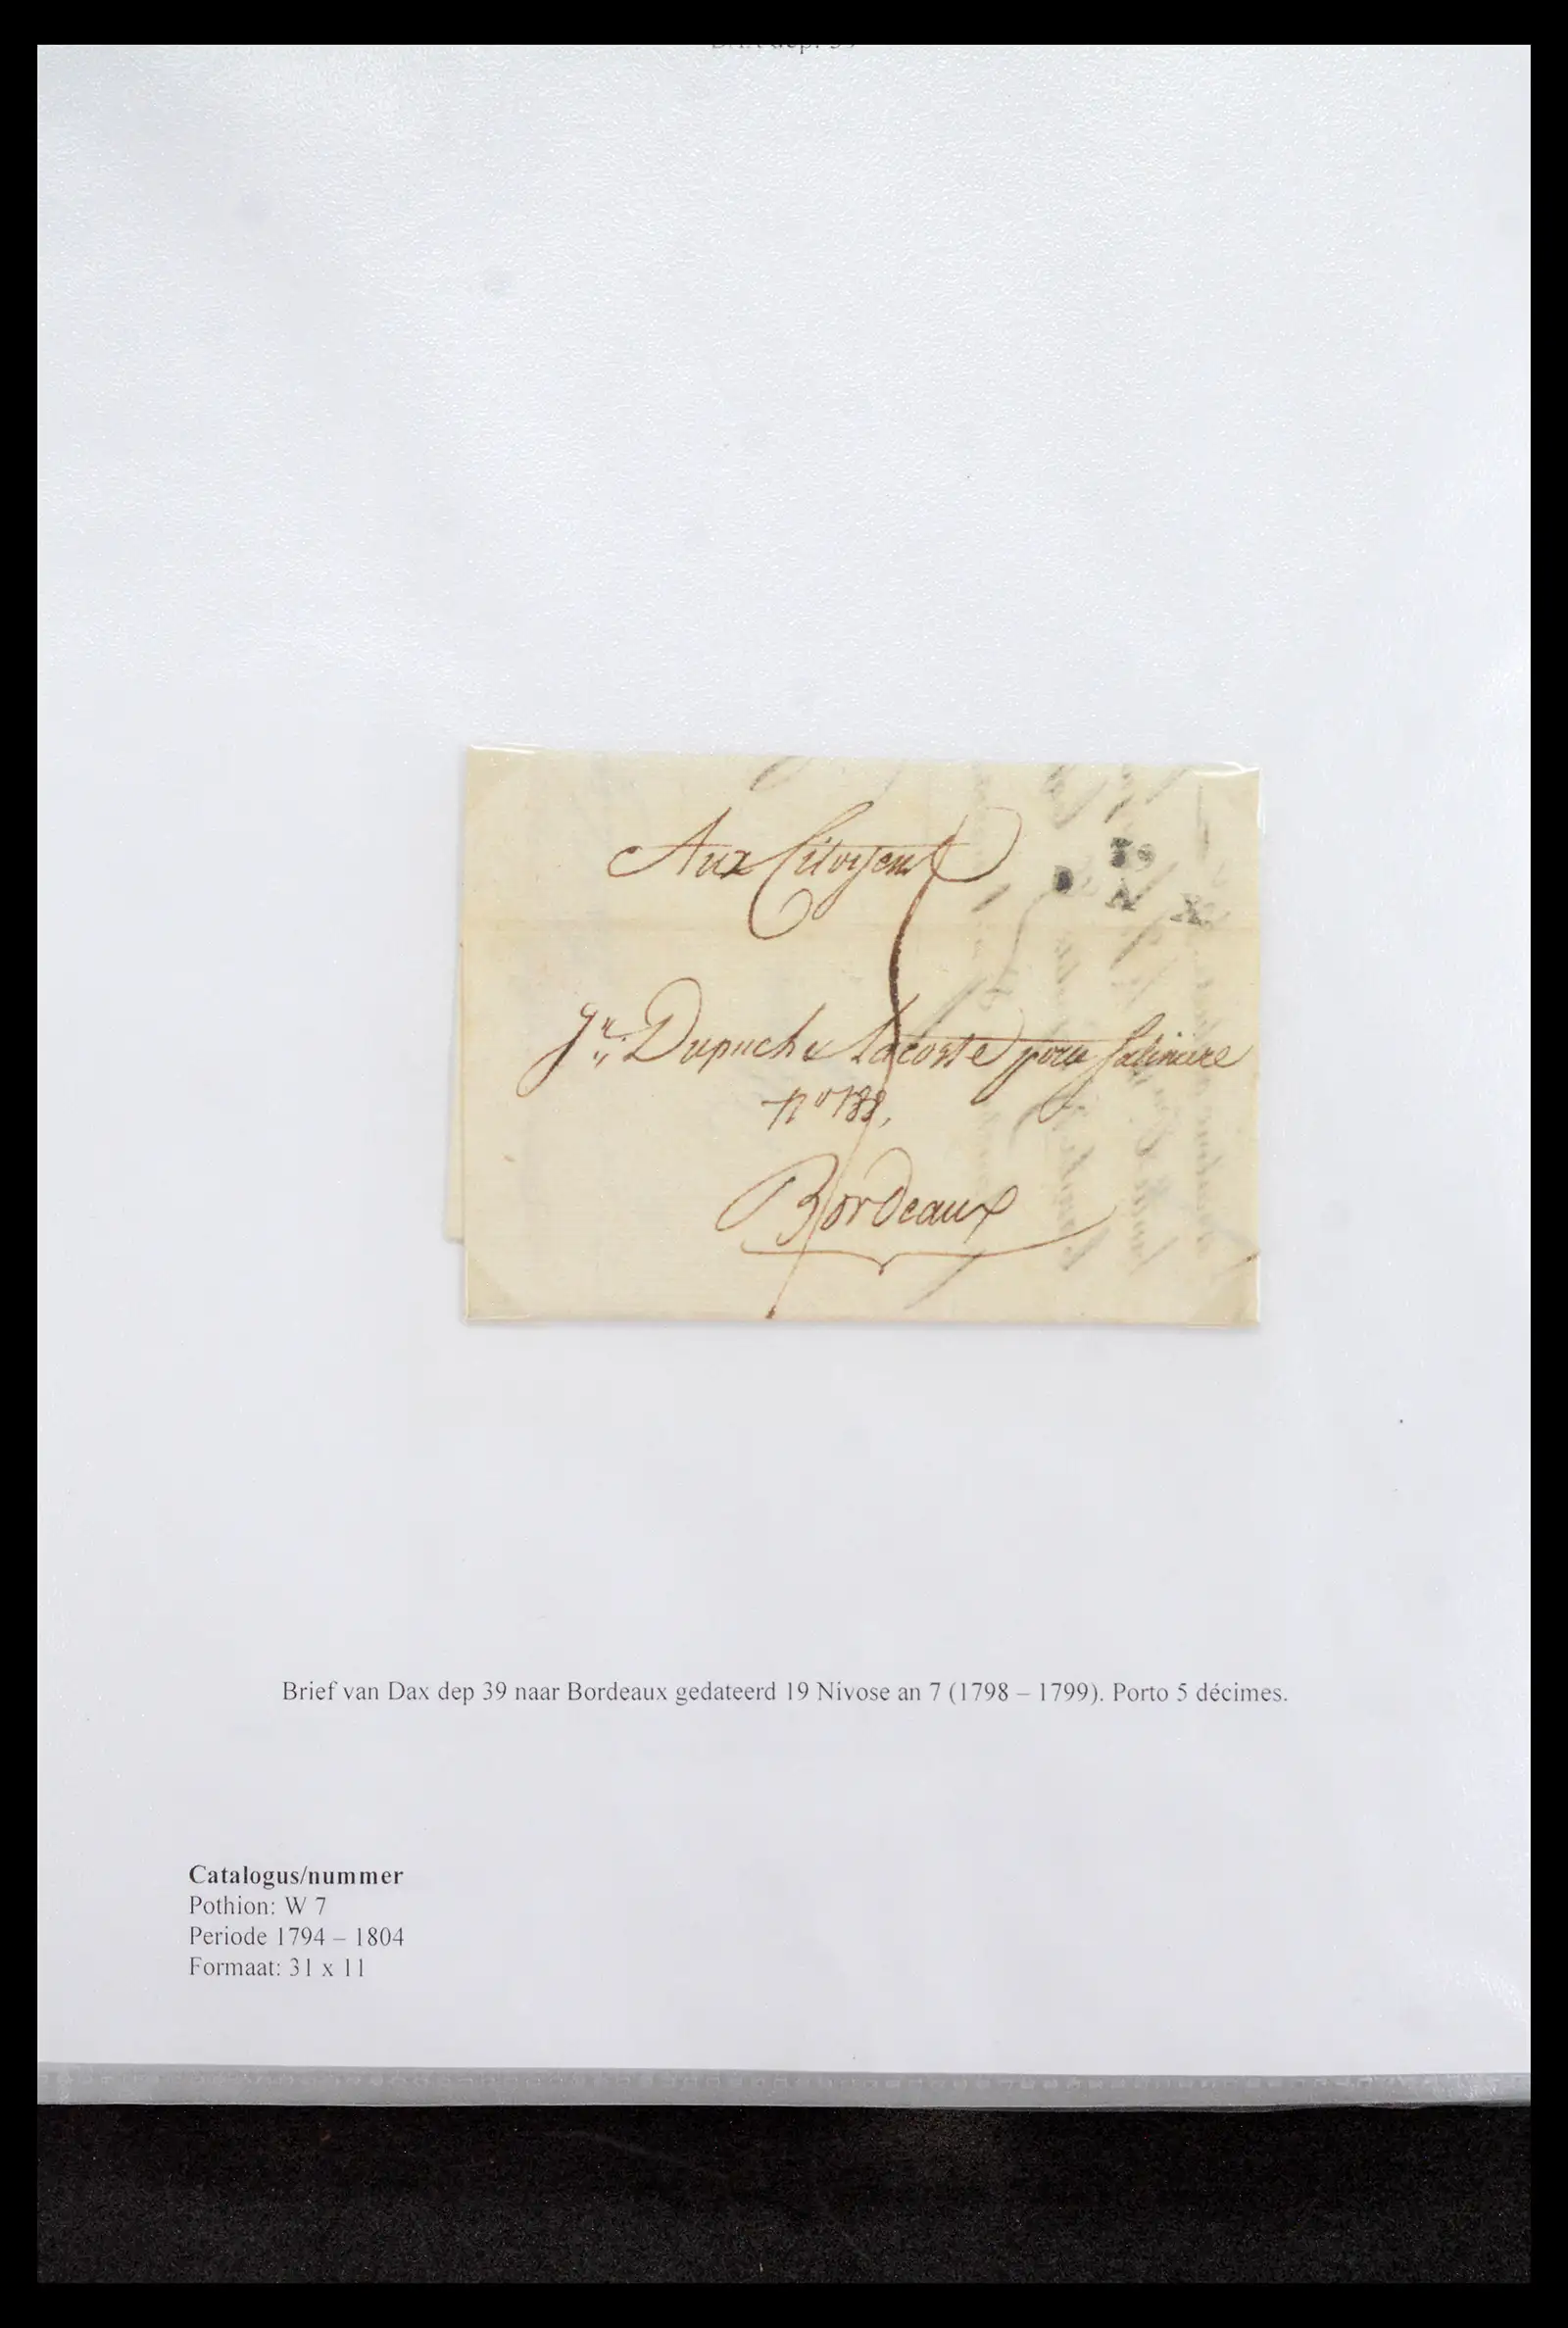 DAX dep. 39
Aux Citoyens
39
D A X
Jn. Dupuch & Lacoste pour
no 188,
Bordeaux
Brief van Dax dep 39 naar Bordeaux gedateerd 19 Nivose an 7 (1798 – 1799). Porto 5 décimes.
Catalogus/nummer
Pothion: W 7
Periode 1794 – 1804
Formaat: 31 x 11